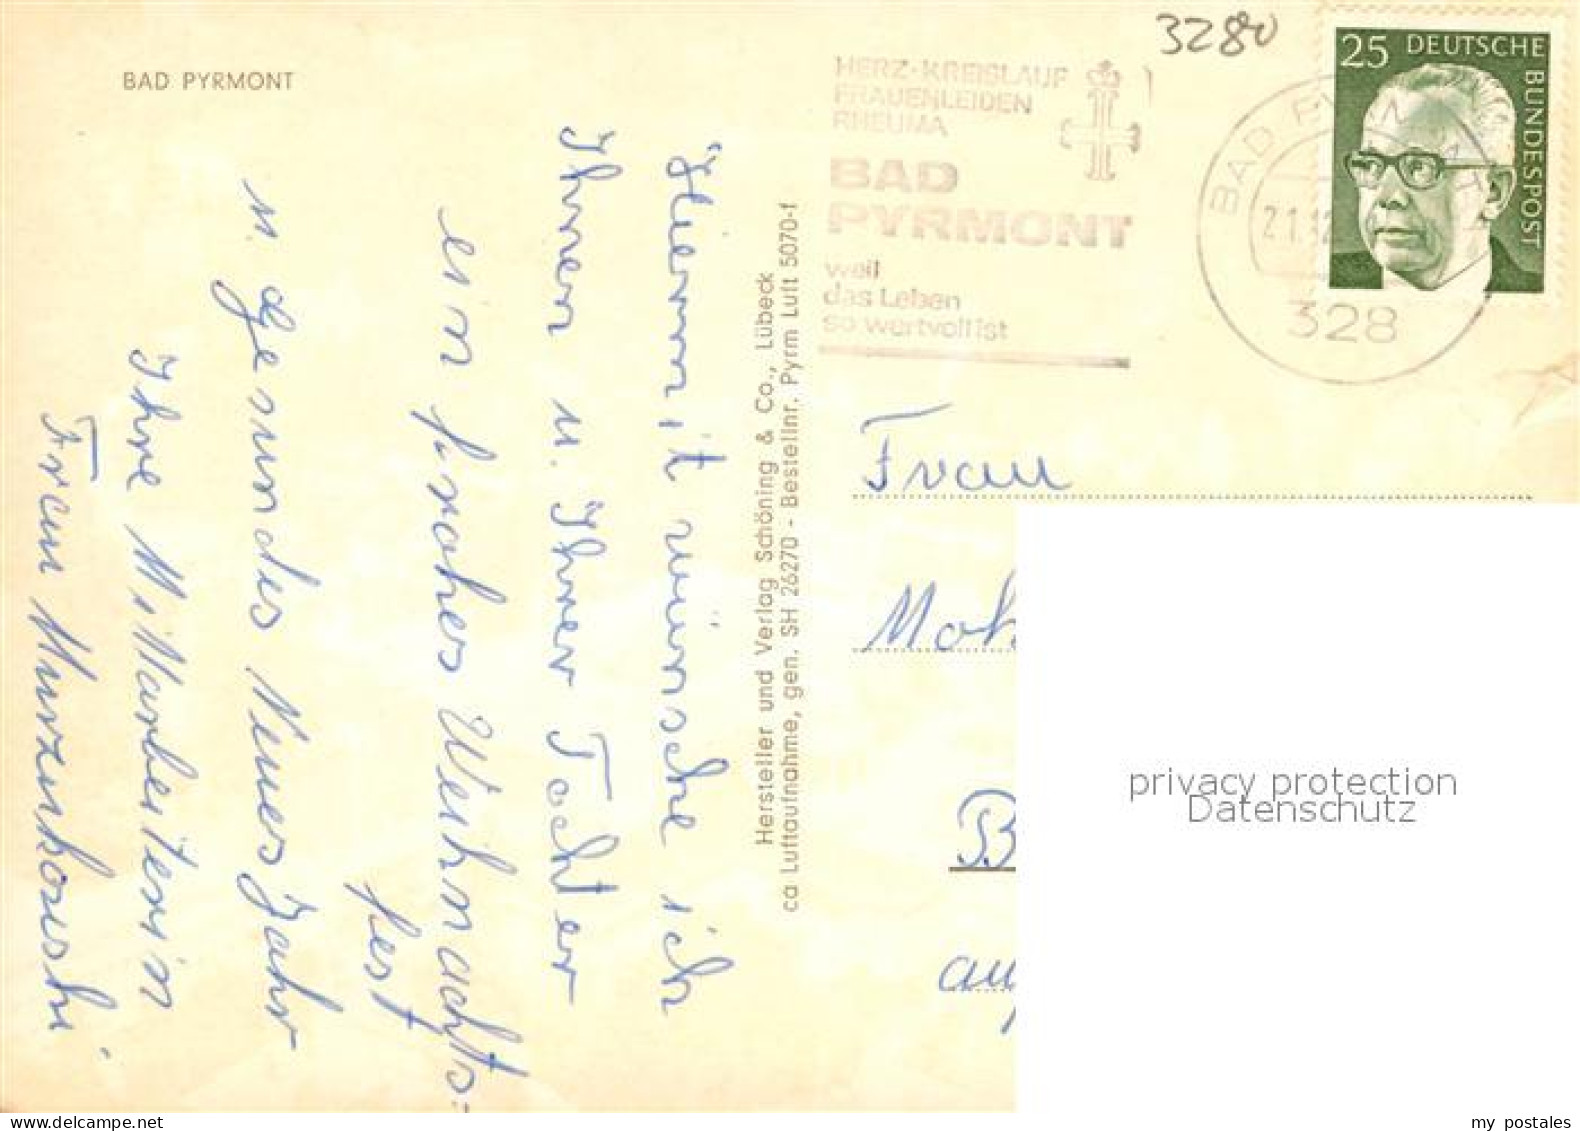 BAD PYRMONT
Hiermit wünsche ich
Ihnen u. Ihrer Tochter
ein frohes Weihnachts-
fest
u gesundes Neues Jahr
Ihre Mitarbeiterin
Frau
Hersteller und Verlag Schöning & Co., Lübeck
ca Luftaufnahme, gen. SH 26270 - Bestellnr. Pyrm Luft 5070-f
HERZ-KREISLAUF
FRAUENLEIDEN
RHEUMA
BAD
PYRMONT
weil
das Leben
so wertvoll ist
3280
25 DEUTSCHE
BUNDESPOST
BAD PYRM
21.12
328
Frau
Moh
B
au
privacy protection
Datenschutz
www.delcampe.net
my_postales